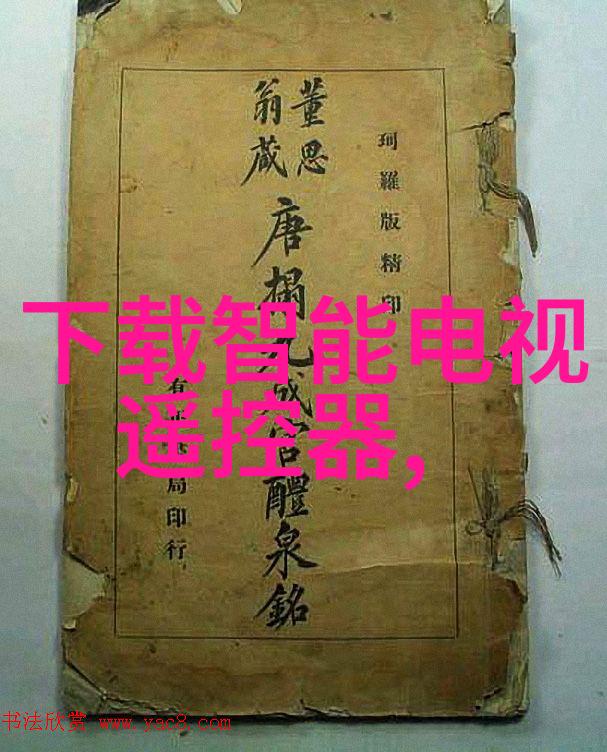 珂羅版精印
董思
翁藏
唐搨九成宮醴泉銘
有正局印行
下载智能电视
遥控器,
书法欣赏 www.yac8.com